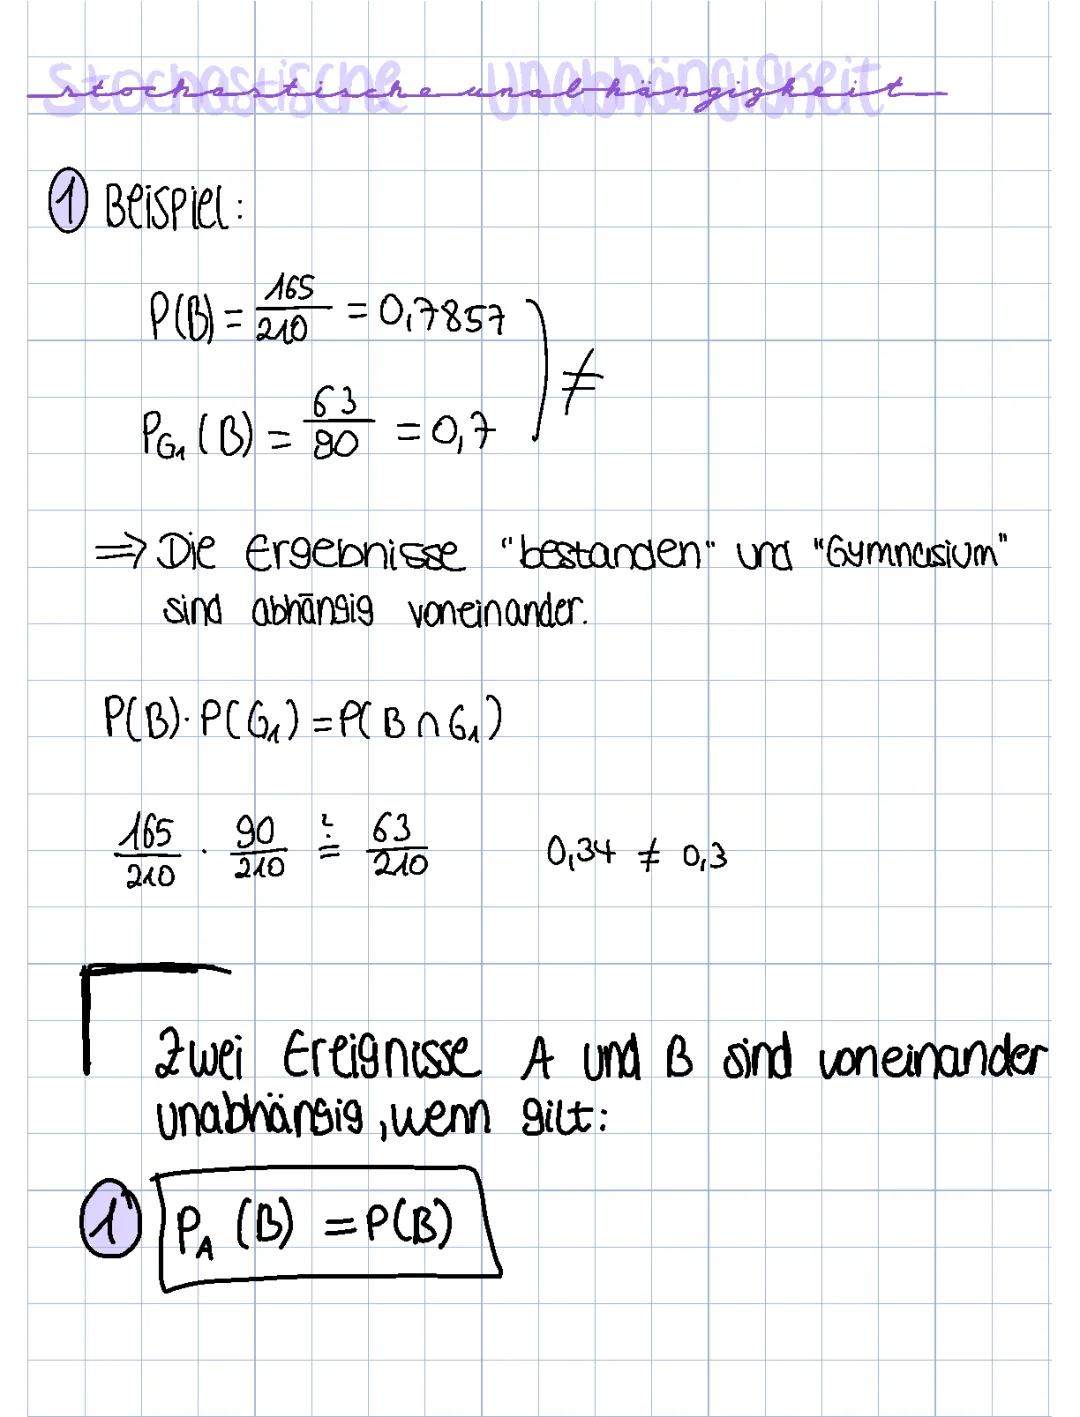 Stochastische Unabhängigkeit
stochastische unabhängigkeit
1 Beispiel:
P(B) = 165/210 = 0,7857
≠
P_G₁ (B) = 63/90 = 0,7
⇒ Die Ergebnisse "bestanden" und "Gymnasium"
sind abhängig voneinander.
P(B)·P(G₁) = P(B∩G₁)
165/210 · 90/210 ≟ 63/210 0,34 ≠ 0,3
Zwei Ereignisse A und B sind voneinander
unabhängig, wenn gilt:
1 P_A (B) = P(B)